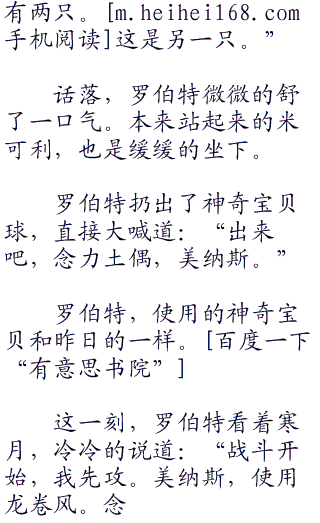 有两只。[m.heihei168.com
手机阅读]这是另一只。”
话落，罗伯特微微的舒
了一口气。本来站起来的米
可利，也是缓缓的坐下。
罗伯特扔出了神奇宝贝
球，直接大喊道：“出来
吧，念力土偶，美纳斯。”
罗伯特，使用的神奇宝
贝和昨日的一样。[百度一下
“有意思书院”]
这一刻，罗伯特看着寒
月，冷冷的说道：“战斗开
始，我先攻。美纳斯，使用
龙卷风。念